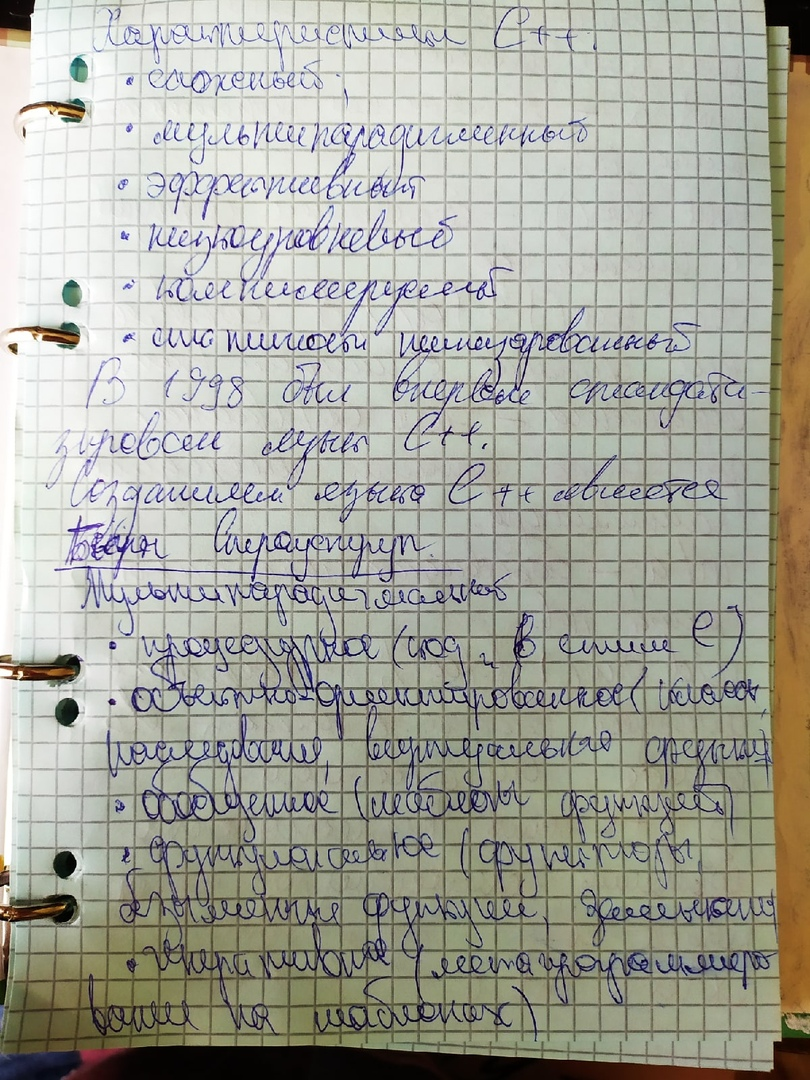 Характеристики С++:
• сложный;
• мультипарадигменный
• эффективный
• низкоуровневый
• компилируемый
• статически типизированный
В 1998 был впервые стандарти-
зирован язык С++.
Создателем языка С++ является
Бьёрн Страуструп.
Мультипарадигмальный
• процедурное (код "в стиле С")
• объектно-ориентированное (классы,
наследования, виртуальная функция)
• обобщенное (шаблоны функций)
• функциональное (функторы,
безыменные функции, замыкания)
• генеративное (метапрограммиро
вание на шаблонах)